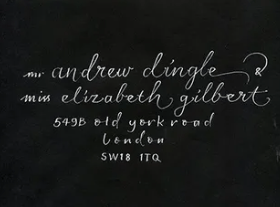 mr andrew dingle &
miss elizabeth gilbert
549B old york road
london
SW18 1TQ